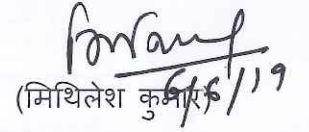 (मिथिलेश कुमार)
6/6/19